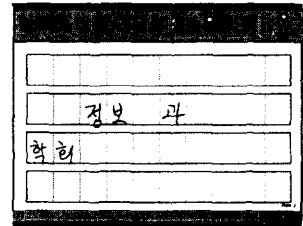 정보 과
학회